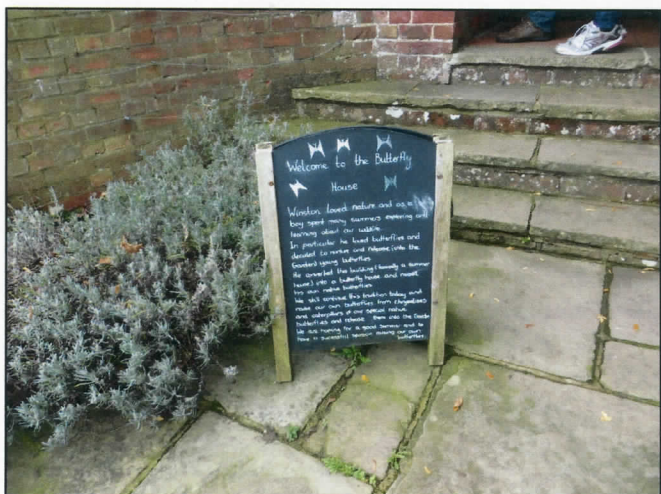 Welcome to the Butterfly
House
Winston loved nature and as a
boy spent many summers exploring and
learning about our wildlife.
In particular he loved butterflies and
decided to nurture and release into the
Gardens young butterflies.
He converted this building (formally a summer
house) into a butterfly house and
his own native butterflies.
We still continue this tradition today and
raise our own butterflies from chrysalises
and caterpillars of our special native
butterflies and release them into the Gardens
We are hoping for a good summer and to
have a successful season raising our own
butterflies.